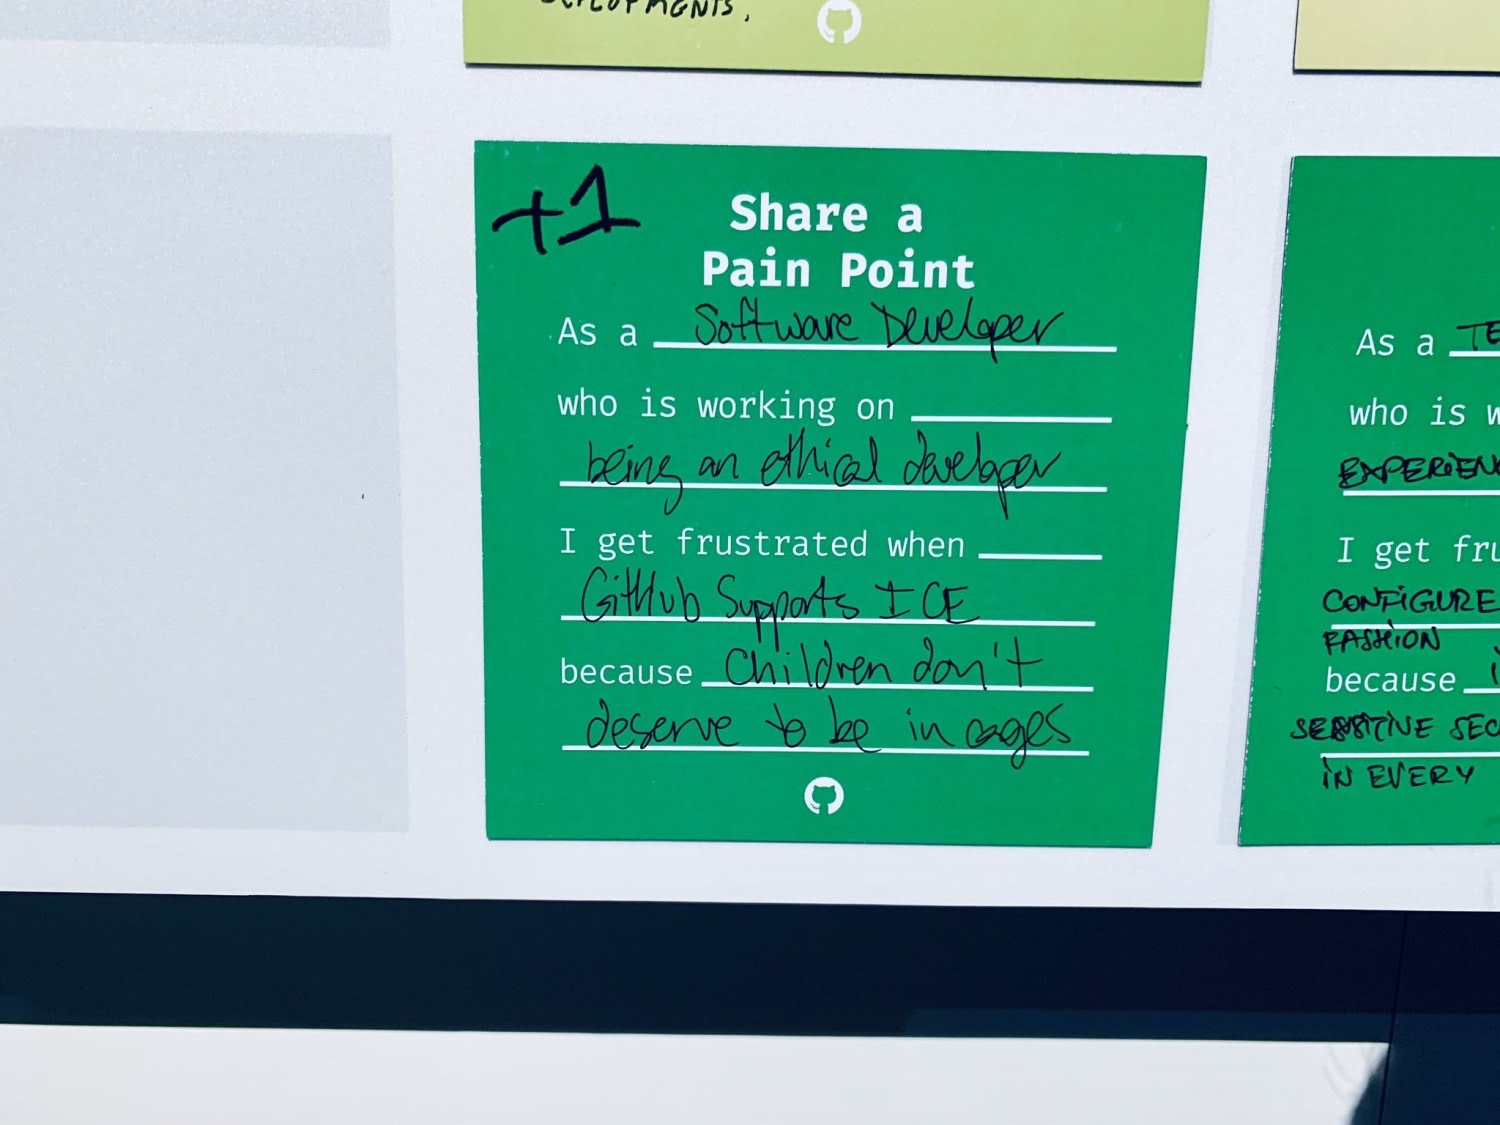 DEPLOYMENTS.
+1
Share a
Pain Point
As a Software Developer
who is working on
being an ethical developer
I get frustrated when
GitHub Supports ICE
because Children don't
deserve to be in cages
As a TE
who is w
EXPERIENC
I get fru
CONFIGURE
FASHION
because
SENSITIVE SEC
IN EVERY